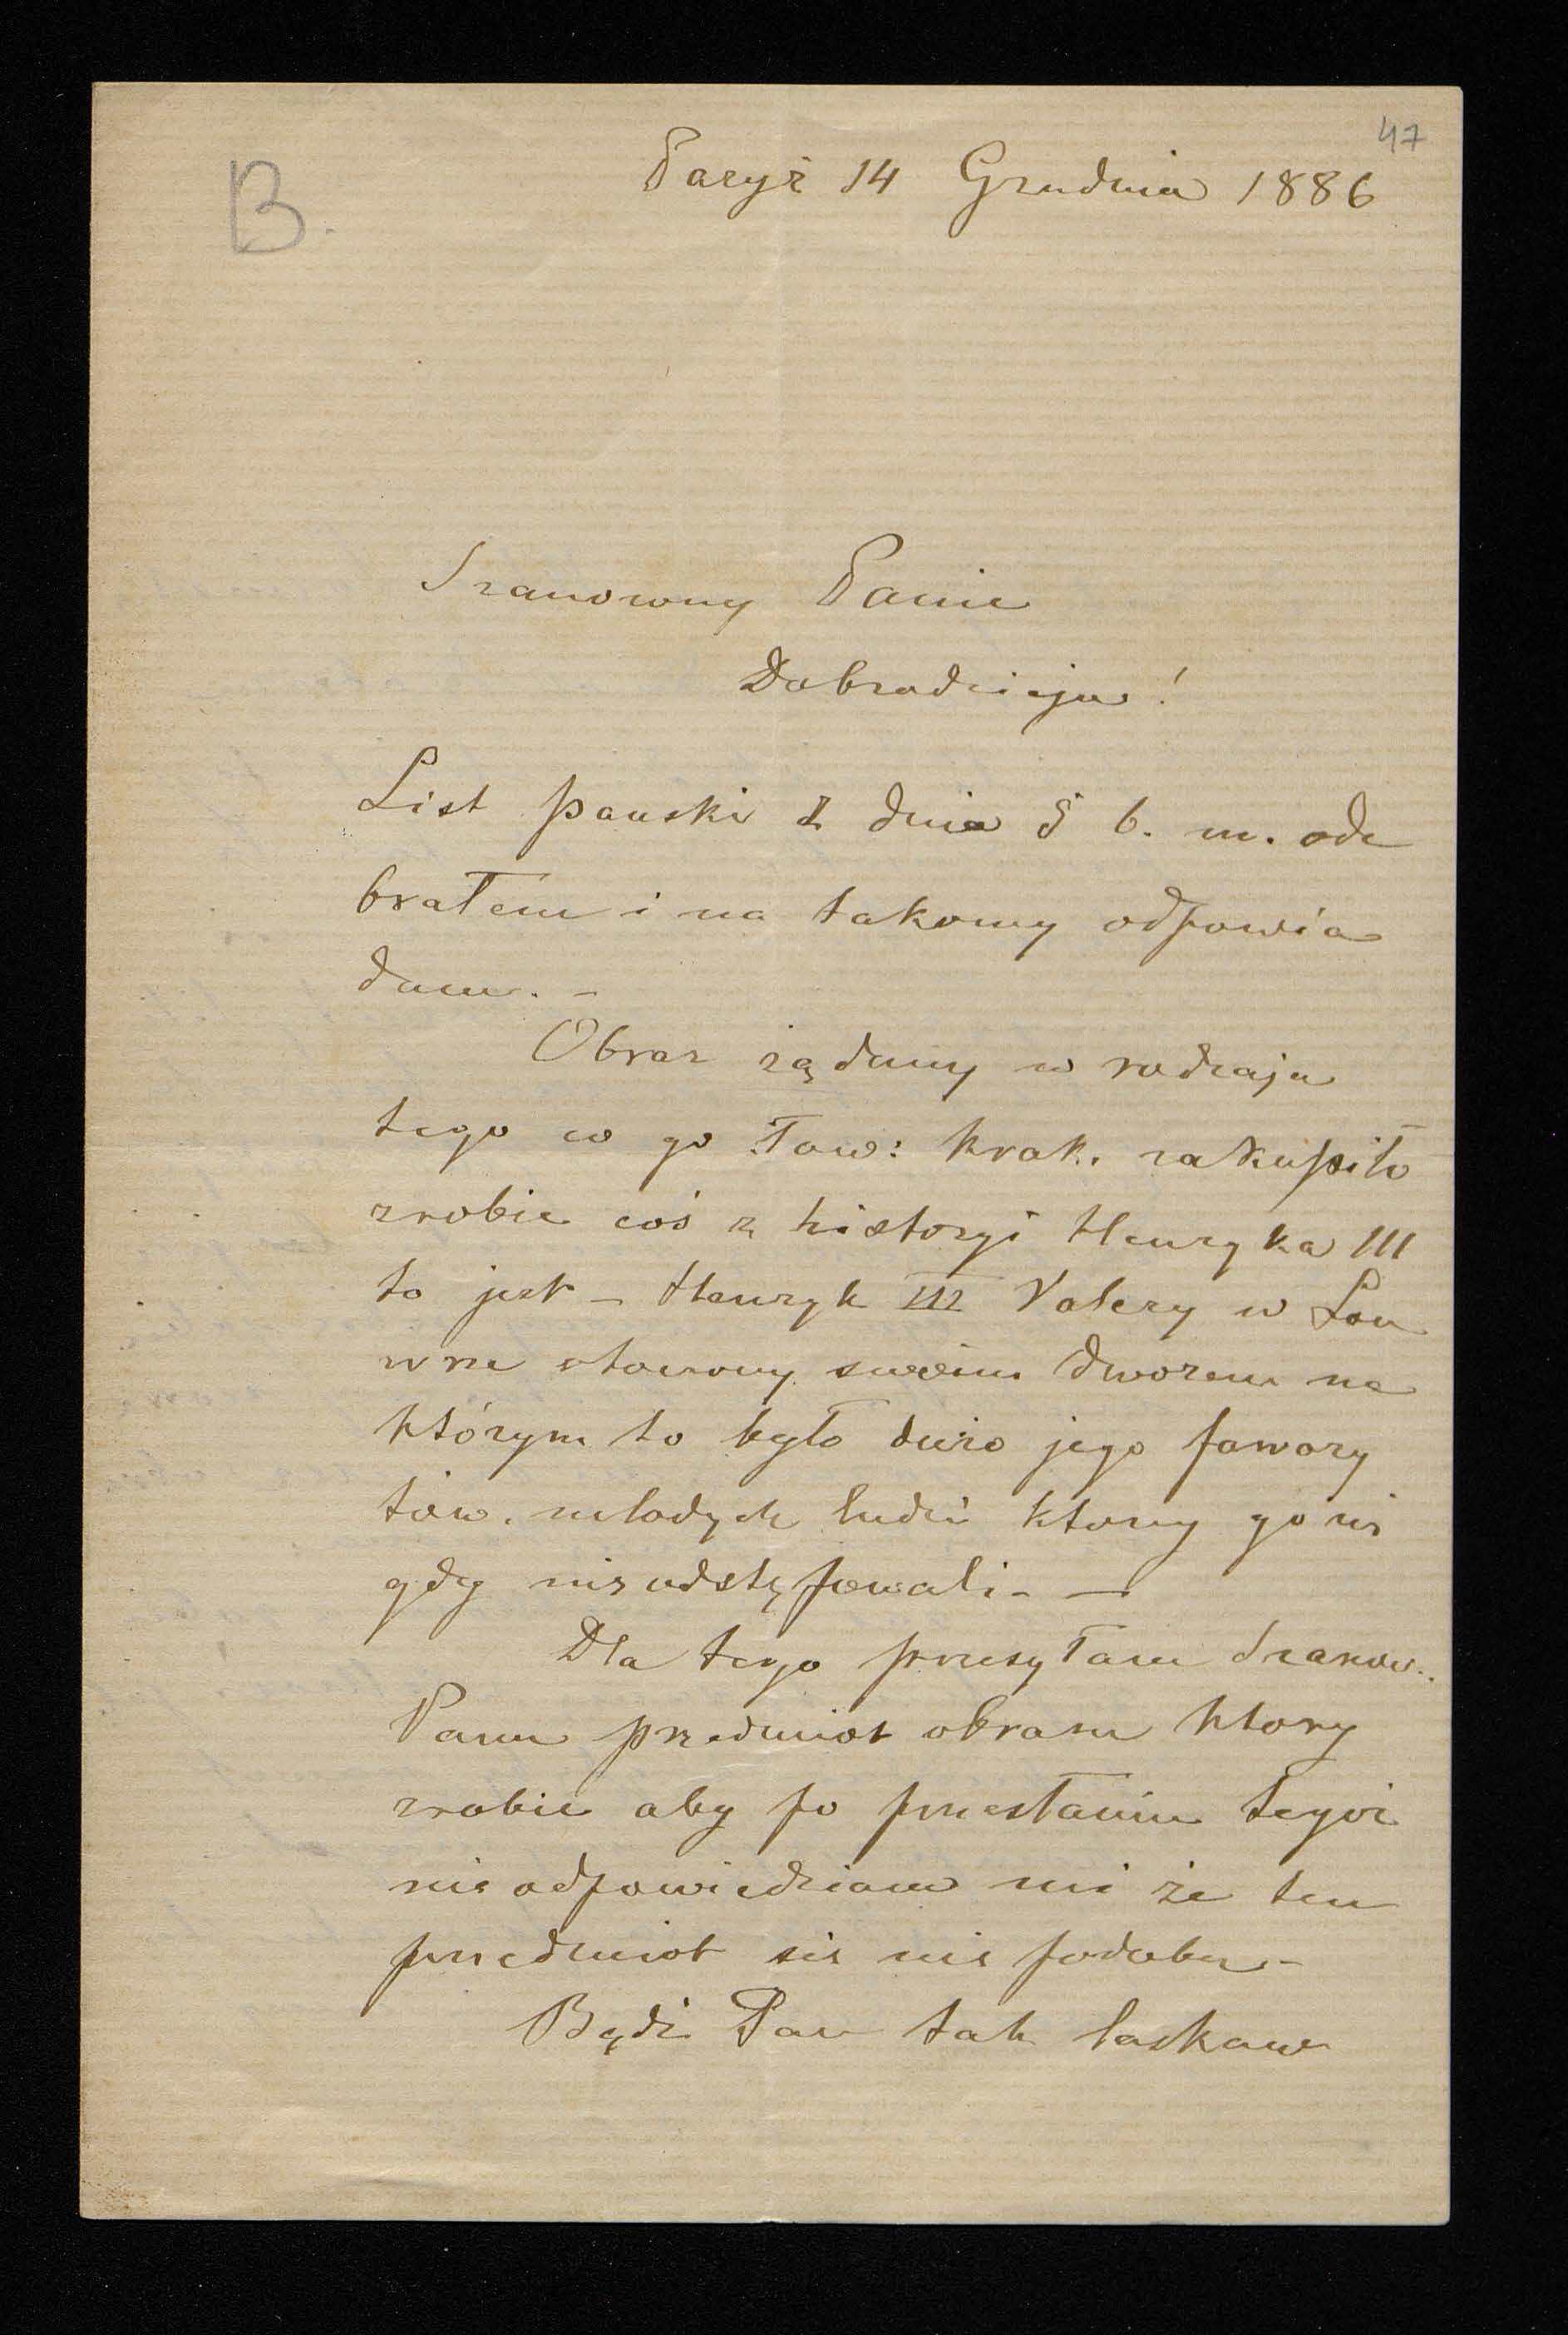 47
B.
Paryż 14 Grudnia 1886
Szanowny Panie
Dobrodzieju!
List pański z dnia 8 b. m. ode
brałem i na takowy odpowia
dam. -
Obraz żądany w rodzaju
tego co go Tow: krak. zakupiło
zrobie coś z historyi Henryka III
to jest - Henryk III Valezy w Lou
wrze otoczony swoim dworem na
którym to było dużo jego fawory
tów. młodych ludzi ktorzy go ni
gdy nie odstępowali. —
Dla tego przesyłam Szanow..
Panu przedmiot obrazu ktory
zrobie aby po przesłaniu tegoż
nie odpowiedziano mi że ten
przedmiot sie nie podoba -
Bądź Pan tak łaskaw